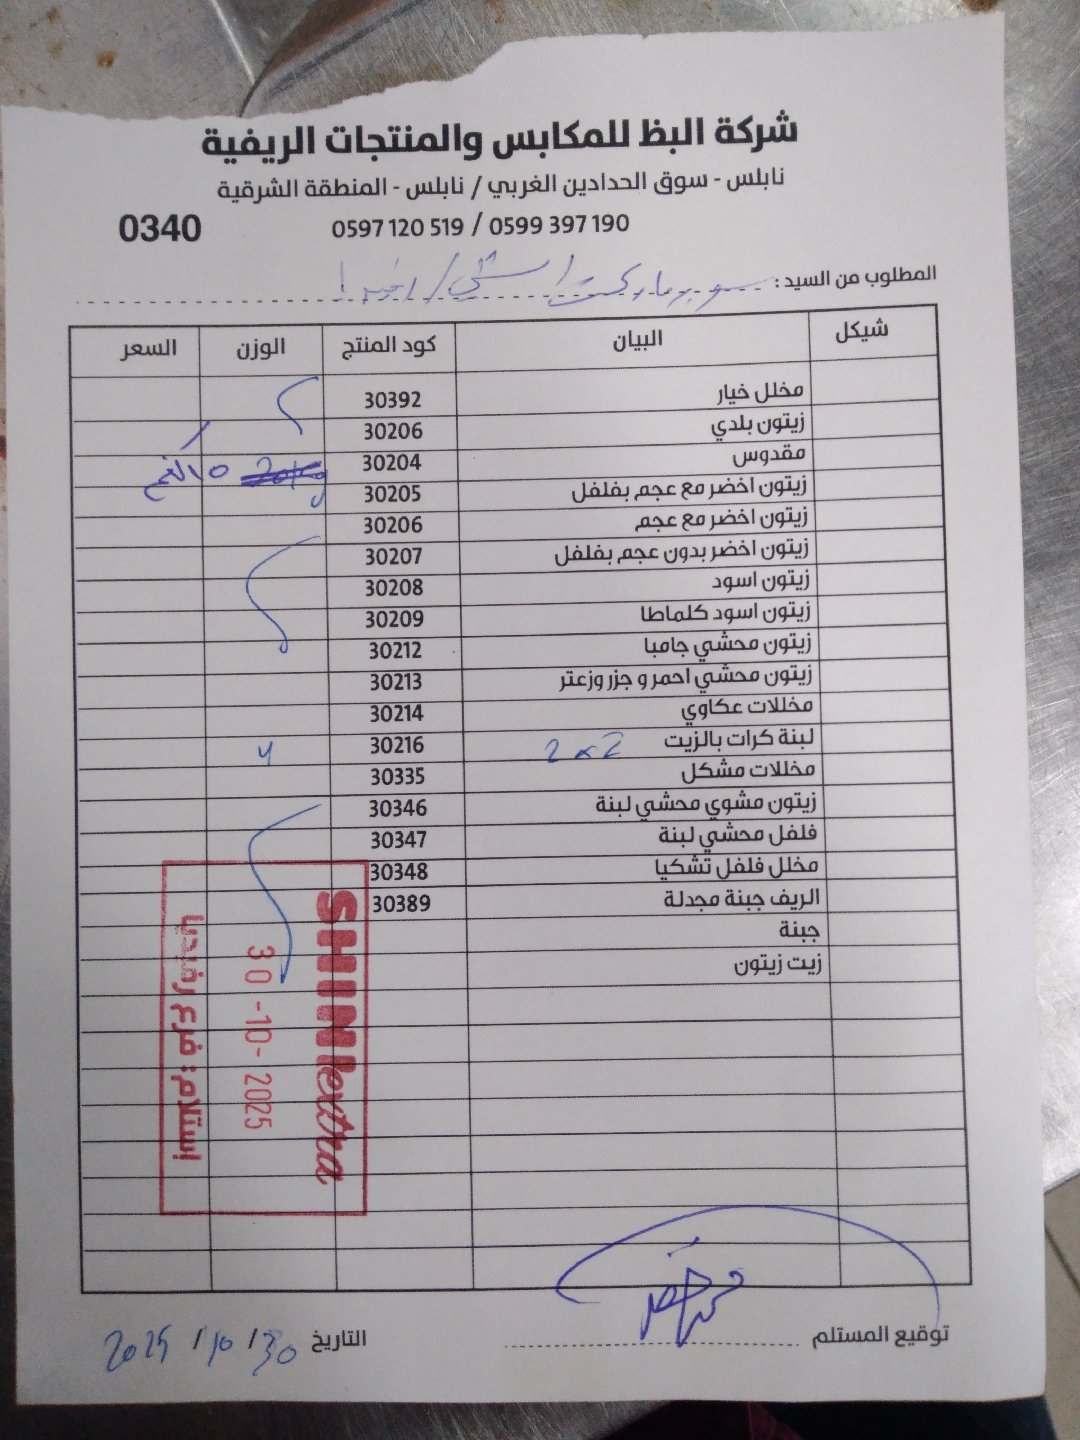 شركة البظ للمكابس والمنتجات الريفية
نابلس - سوق الحدادين الغربي / نابلس - المنطقة الشرقية
0599 397 190 / 0597 120 519
0340
المطلوب من السيد : سوبر ماركت
شيكل البيان كود المنتج الوزن السعر
مخلل خيار 30392
زيتون بلدي 30206
مقدوس 30204
زيتون اخضر مع عجم بفلفل 30205
زيتون اخضر مع عجم 30206
زيتون اخضر بدون عجم بفلفل 30207
زيتون اسود 30208
زيتون اسود كلماطا 30209
زيتون محشي جامبا 30212
زيتون محشي احمر و جزر وزعتر 30213
مخللات عكاوي 30214
لبنة كرات بالزيت 2x2 30216 4
مخللات مشكل 30335
زيتون مشوي محشي لبنة 30346
فلفل محشي لبنة 30347
مخلل فلفل تشكيا 30348
الريف جبنة مجدلة 30389
جبنة
زيت زيتون
SHINI extra
30-10-2025
إستلام: فرع رفيديا
توقيع المستلم
التاريخ 30 / 10 / 2025